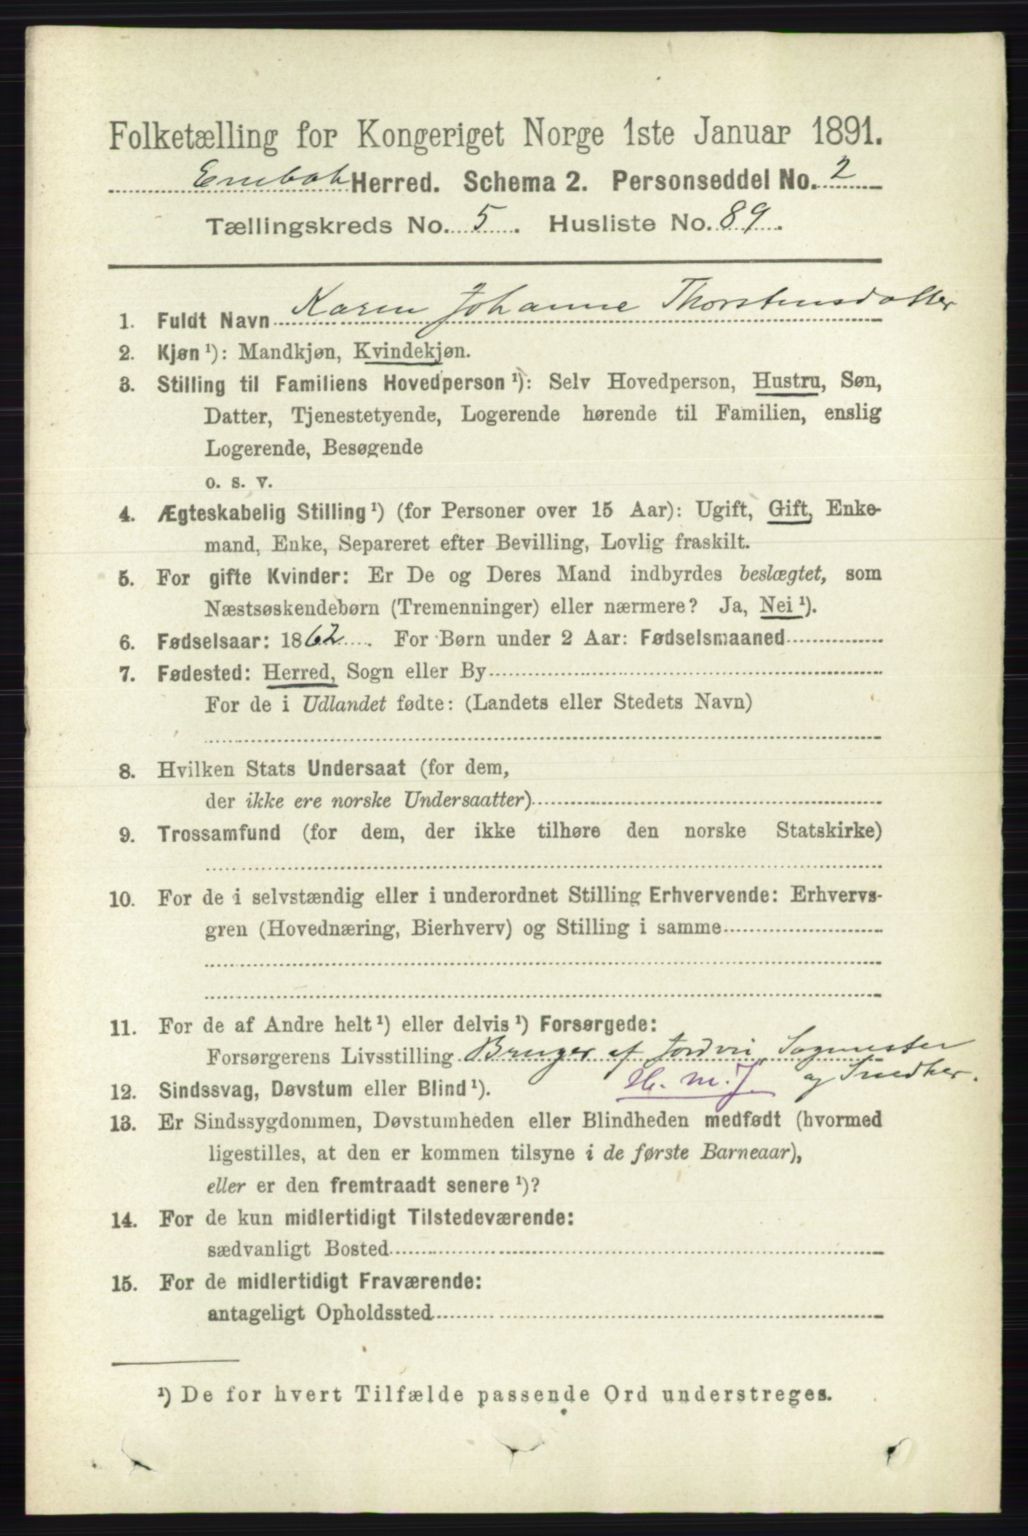 Folketælling for Kongeriget Norge 1ste Januar 1891.
Enebak Herred. Schema 2. Personseddel No. 2
Tællingskreds No. 5. Husliste No. 89.
1. Fuldt Navn Karen Johanne Thorstensdatter
2. Kjøn ¹): Mandkjøn, Kvindekjøn.
3. Stilling til Familiens Hovedperson ¹): Selv Hovedperson, Hustru, Søn,
Datter, Tjenestetyende, Logerende hørende til Familien, enslig
Logerende, Besøgende
o. s. v.
4. Ægteskabelig Stilling ¹) (for Personer over 15 Aar): Ugift, Gift, Enke-
mand, Enke, Separeret efter Bevilling, Lovlig fraskilt.
5. For gifte Kvinder: Er De og Deres Mand indbyrdes beslægtet, som
Næstsøskendebørn (Tremenninger) eller nærmere? Ja, Nei ¹).
6. Fødselsaar: 1862. For Børn under 2 Aar: Fødselsmaaned
7. Fødested: Herred, Sogn eller By
For de i Udlandet fødte: (Landets eller Stedets Navn)
8. Hvilken Stats Undersaat (for dem,
der ikke ere norske Undersaatter)
9. Trossamfund (for dem, der ikke tilhøre den norske Statskirke)
10. For de i selvstændig eller i underordnet Stilling Erhvervende: Erhvervs-
gren (Hovednæring, Bierhverv) og Stilling i samme
11. For de af Andre helt ¹) eller delvis ¹) Forsørgede:
Forsørgerens Livsstilling Bruger af Jordvei Sagmester
12. Sindssvag, Døvstum eller Blind ¹). H. m. J. og Snedker.
13. Er Sindssygdommen, Døvstumheden eller Blindheden medfødt (hvormed
ligestilles, at den er kommen tilsyne i de første Barneaar),
eller er den fremtraadt senere ¹)?
14. For de kun midlertidigt Tilstedeværende:
sædvanligt Bosted
15. For de midlertidigt Fraværende:
antageligt Opholdssted
¹) De for hvert Tilfælde passende Ord understreges.